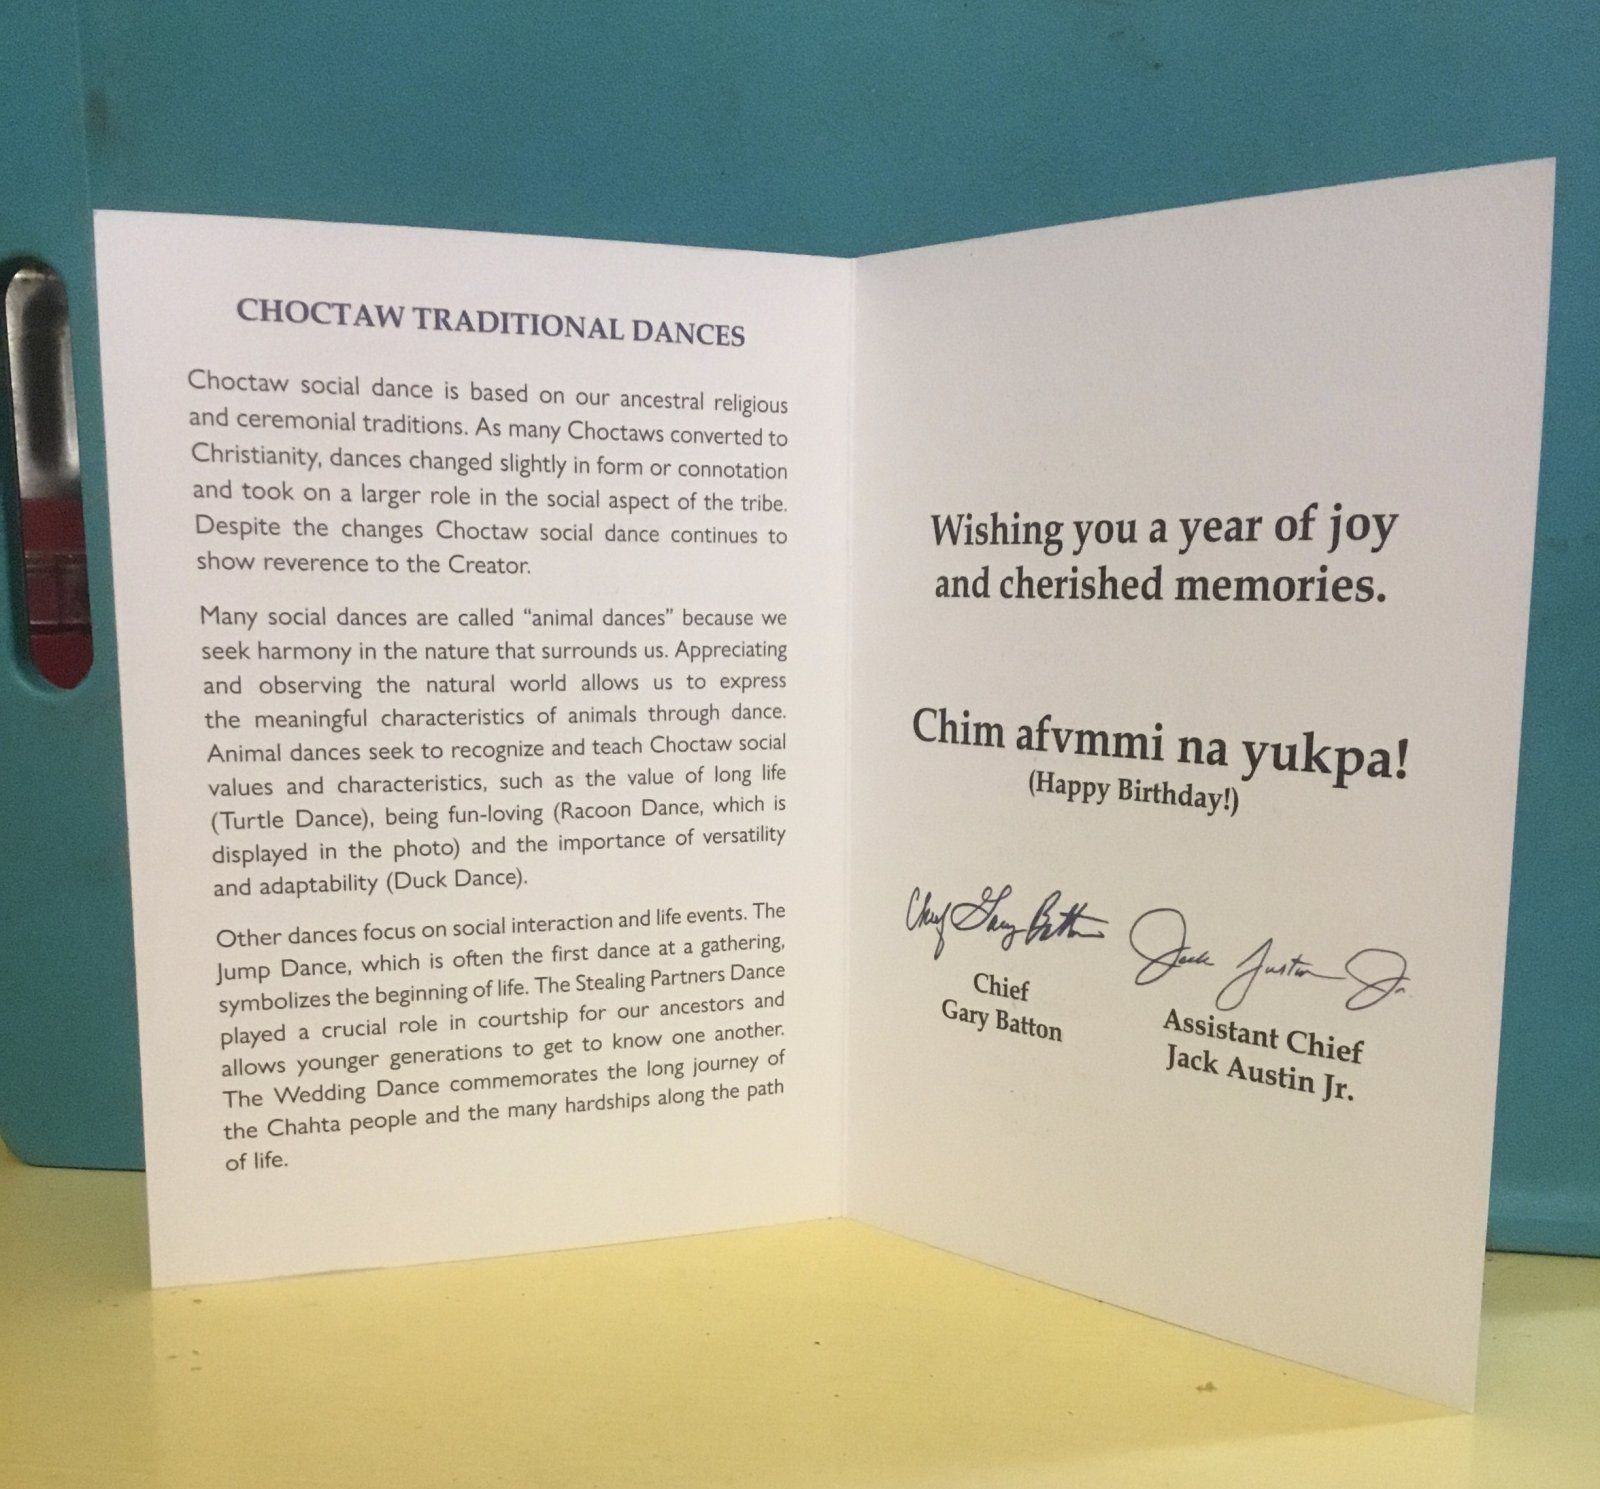 CHOCTAW TRADITIONAL DANCES
Choctaw social dance is based on our ancestral religious
and ceremonial traditions. As many Choctaws converted to
Christianity, dances changed slightly in form or connotation
and took on a larger role in the social aspect of the tribe.
Despite the changes Choctaw social dance continues to
show reverence to the Creator.
Many social dances are called “animal dances” because we
seek harmony in the nature that surrounds us. Appreciating
and observing the natural world allows us to express
the meaningful characteristics of animals through dance.
Animal dances seek to recognize and teach Choctaw social
values and characteristics, such as the value of long life
(Turtle Dance), being fun-loving (Racoon Dance, which is
displayed in the photo) and the importance of versatility
and adaptability (Duck Dance).
Other dances focus on social interaction and life events. The
Jump Dance, which is often the first dance at a gathering,
symbolizes the beginning of life. The Stealing Partners Dance
played a crucial role in courtship for our ancestors and
allows younger generations to get to know one another.
The Wedding Dance commemorates the long journey of
the Chahta people and the many hardships along the path
of life.
Wishing you a year of joy
and cherished memories.
Chim afvmmi na yukpa!
(Happy Birthday!)
Chief Gary Batton
Jack Austin Jr.
Chief
Gary Batton
Assistant Chief
Jack Austin Jr.